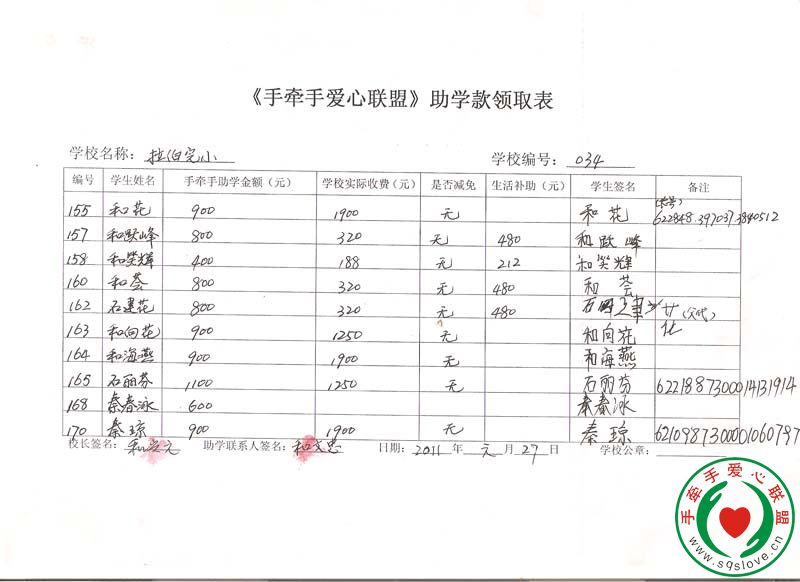 《手牵手爱心联盟》助学款领取表
学校名称： 拉伯完小 学校编号： 034
编号 学生姓名 手牵手助学金额（元） 学校实际收费（元） 是否减免 生活补助（元） 学生签名 备注
155 和花 900 1900 无 和花 622848.397037.3840512
157 和欧峰 800 320 无 480 和欧峰
158 和荣辉 400 188 无 212 和荣辉
160 和荟 800 320 无 480 和荟
162 石建花 800 320 无 480
163 和向花 900 1250 无 和向花
164 和海燕 900 1900 无 和海燕
165 石丽芬 1100 1250 无 石丽芬 6221887300014131914
168 秦春泳 600 秦春泳
170 秦琼 900 1900 无 秦琼 6210987300001060797
校长签名： 助学联系人签名： 和文忠 日期： 2011 年 元 月 27 日 学校公章：
手牵手爱心联盟
www.sqslove.cn